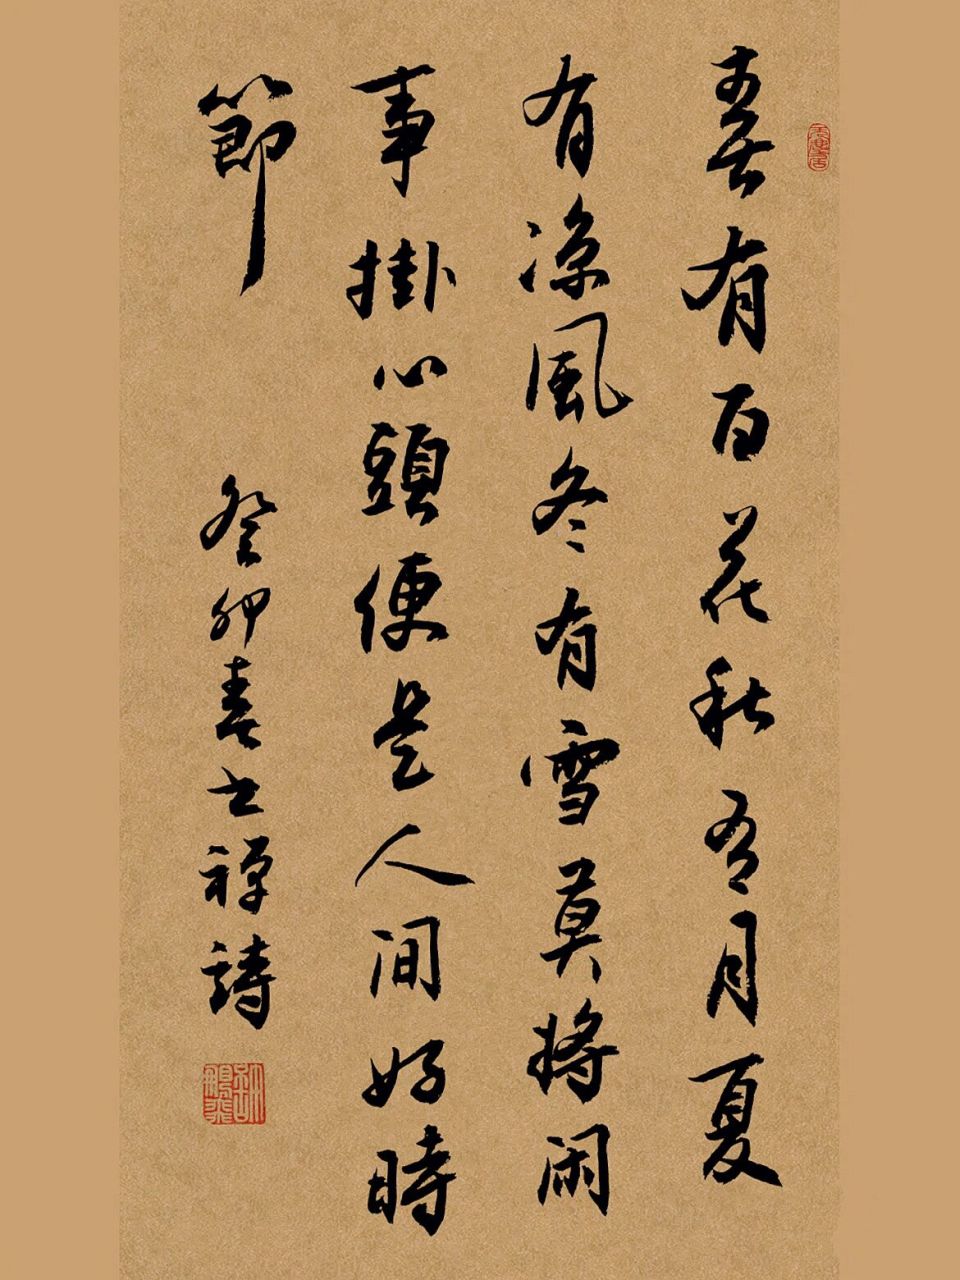 春有百花秋有月夏
有凉風冬有雪莫將闲
事掛心頭便是人间好時
節
癸卯春书禅詩